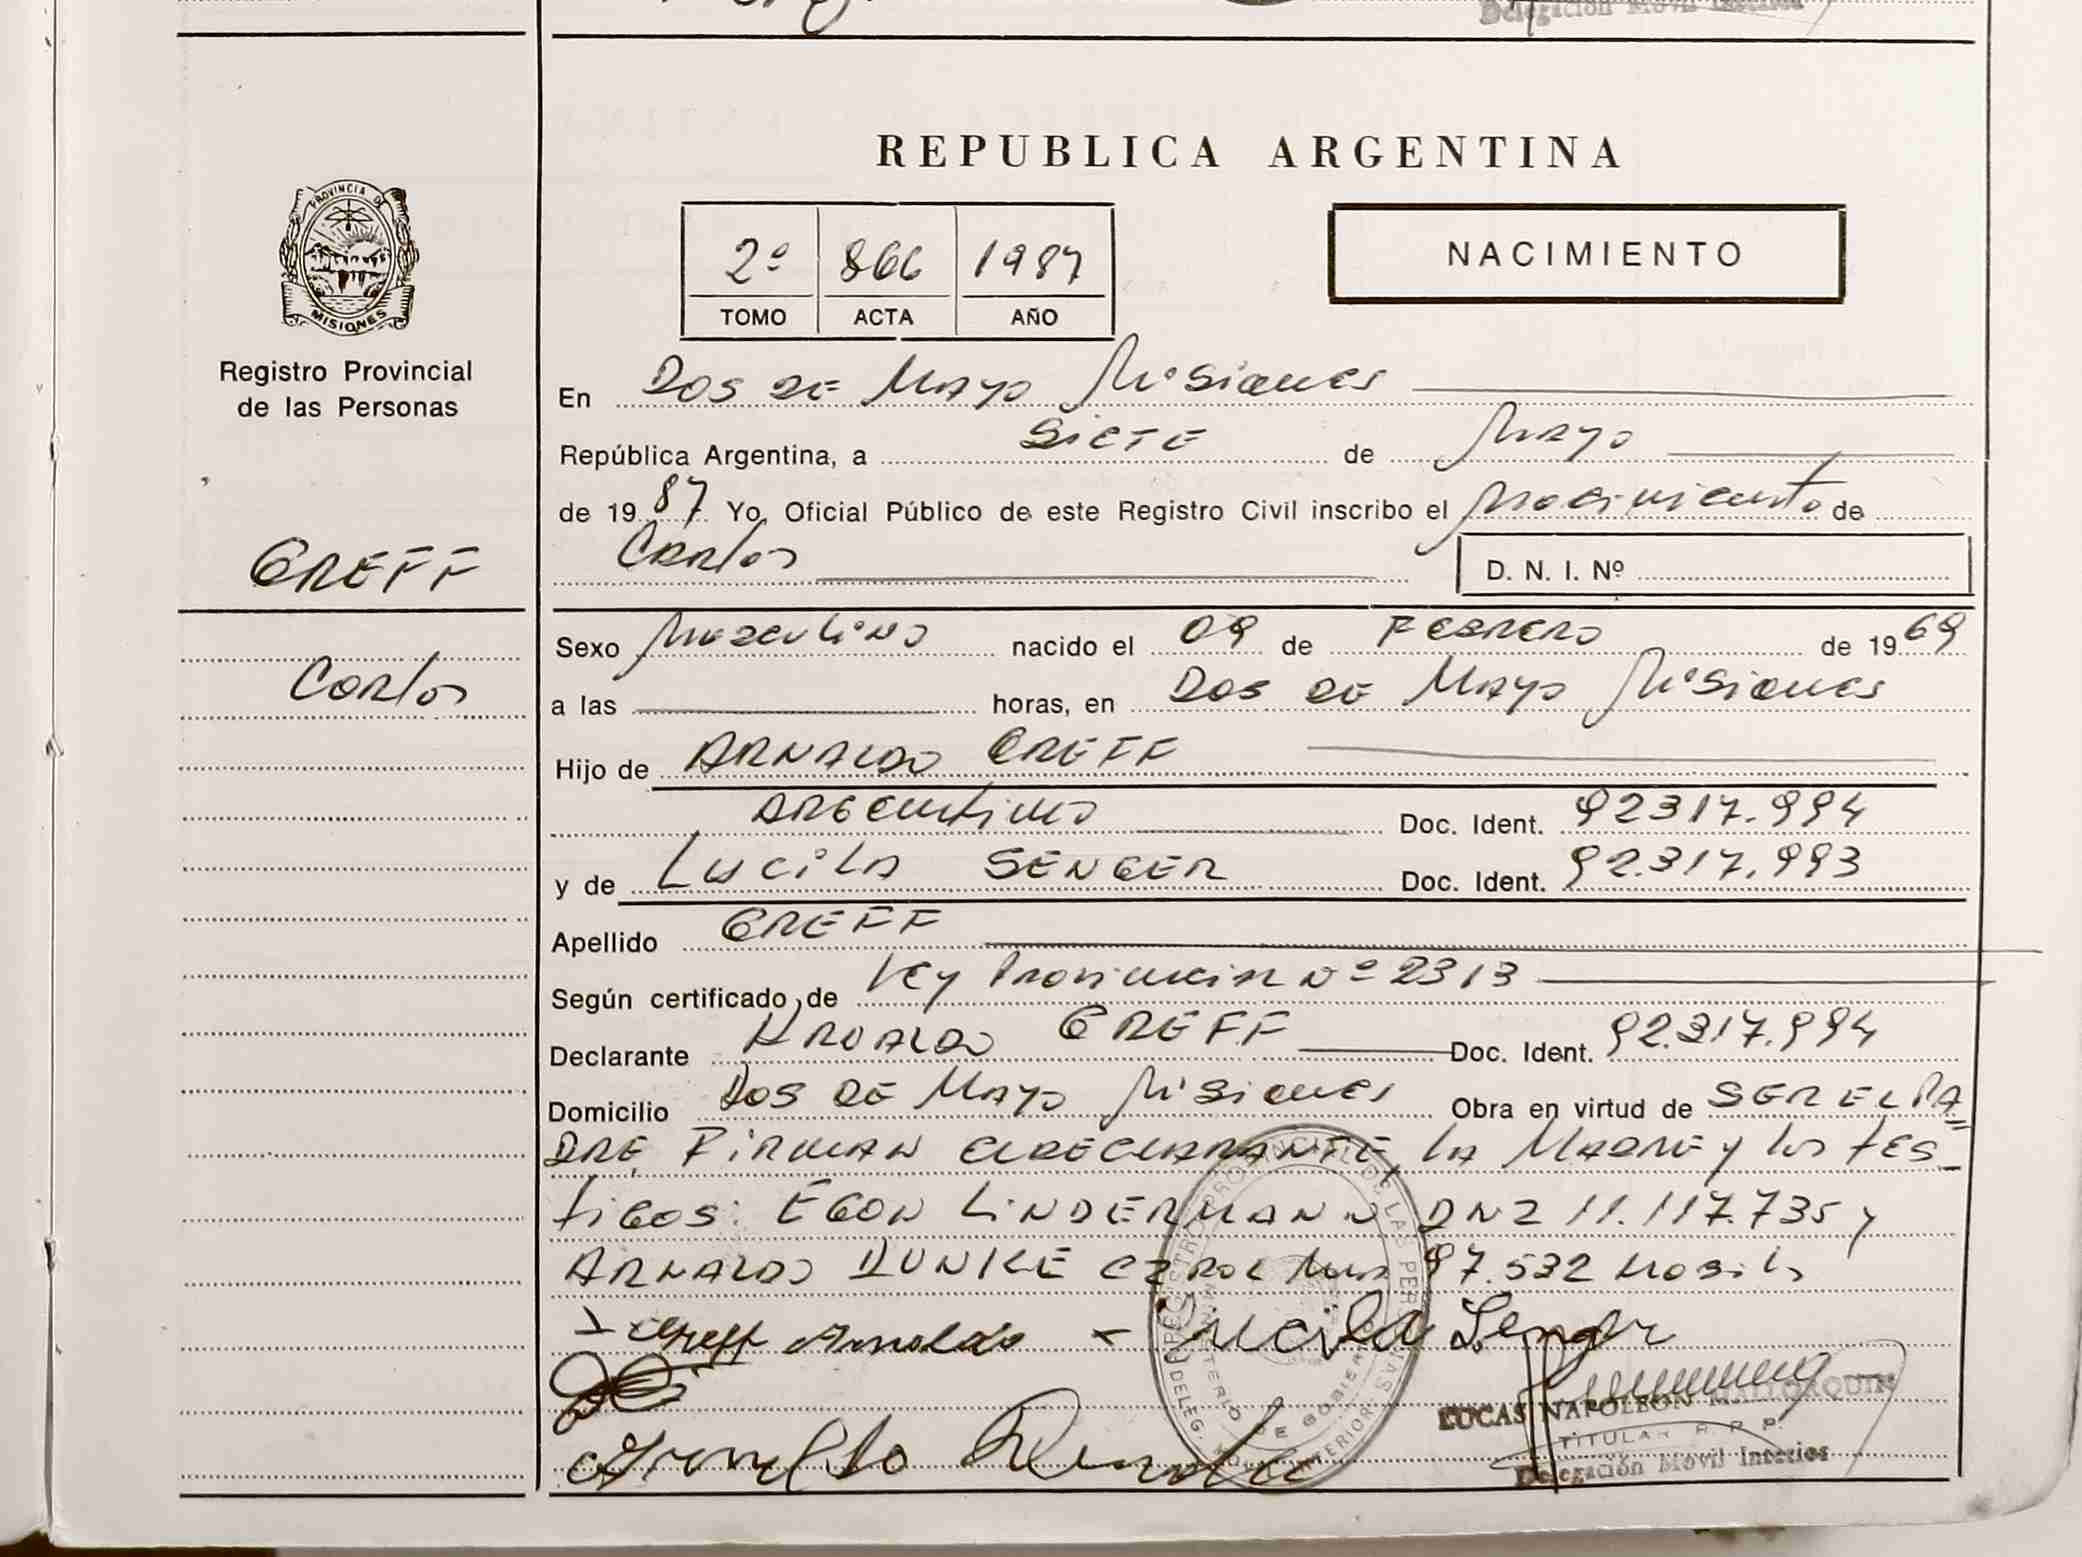 Delegación Móvil Interior
REPUBLICA ARGENTINA
PROVINCIA DE
MISIONES
Registro Provincial
de las Personas
GREFF
Carlos
2º 866 1987
TOMO ACTA AÑO
NACIMIENTO
En Dos de Mayo Misiones
República Argentina, a Siete de Mayo
de 1987 Yo, Oficial Público de este Registro Civil inscribo el Nacimiento de
Carlos
D. N. I. Nº
Sexo Masculino nacido el 09 de Febrero de 1969
a las horas, en Dos de Mayo Misiones
Hijo de ARNALDO GREFF
Argentino Doc. Ident. 92317.994
y de Lucila SENGER Doc. Ident. 92.317.993
Apellido GREFF
Según certificado de Ley Provincial Nº 2313
Declarante Arnaldo GREFF Doc. Ident. 92.317.994
Domicilio Dos de Mayo Misiones Obra en virtud de SER EL PA=
DRE, Firman el declarante, la Madre y los tes_
tigos: EGON LINDERMANN DNI 11.117.735 y
ARNALDO DUNKE 97.532
Greff Arnoldo Lucila Senger
LUCAS NAPOLEON MALLORQUIN
TITULAR R. P. P.
Delegación Móvil Interior